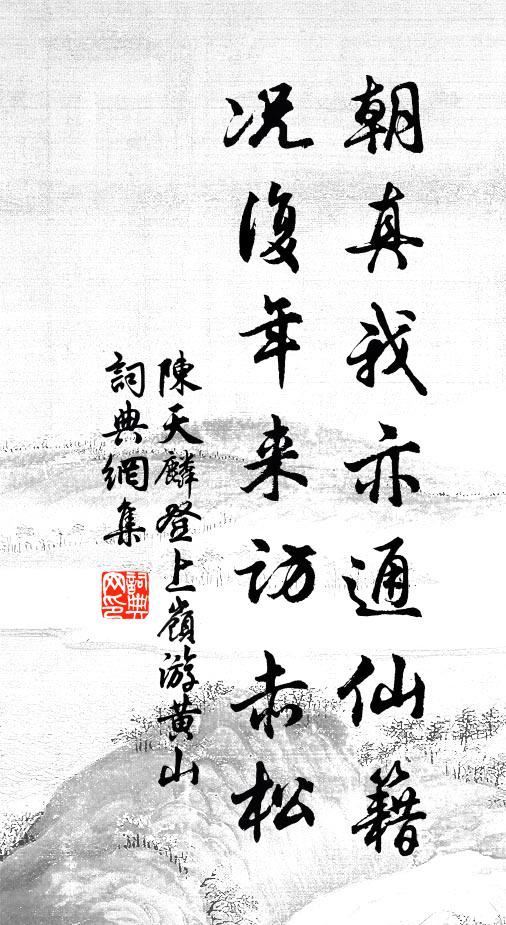 朝真我亦通仙籍
况復年来訪赤松
陳天麟登上嶺游黄山
詞典網集
詞典
网印